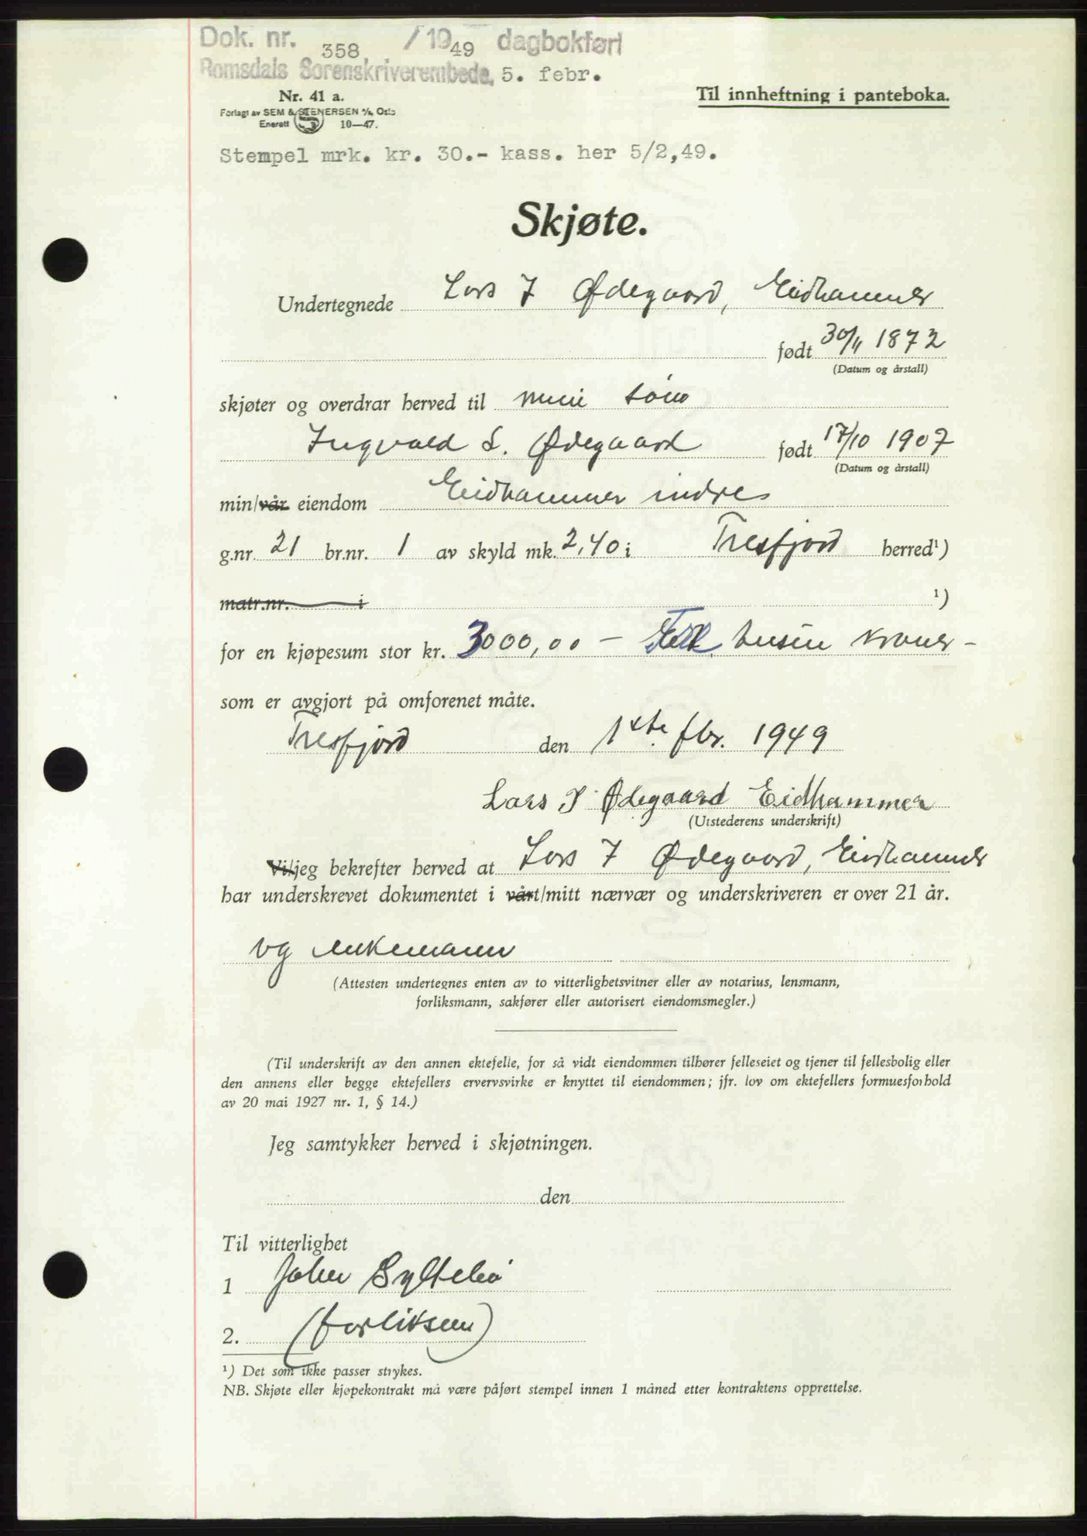 Dok. nr. 358 /1949 dagbokført
Romsdals Sorenskriverembede, 5. febr.
Nr. 41 a.
Til innheftning i panteboka.
Forlagt av SEM & STENERSEN A/S, Oslo
Enerett 10—47.
Stempel mrk. kr. 30.- kass. her 5/2,49.
Skjøte.
Undertegnede Lars J Ødegaard, Eidhammer
født 30/11 1872
(Datum og årstall)
skjøter og overdrar herved til min sønn
Ingvald L. Ødegaard født 17/10 1907
(Datum og årstall)
min/vår eiendom Eidhammer indre
g.nr. 21 br.nr. 1 av skyld mk. 2,40 i Tresfjord herred¹)
matr.nr. i ¹)
for en kjøpesum stor kr. 3000,00 — tusen kroner -
som er avgjort på omforenet måte.
Tresfjord den 1ste fbr. 1949
Lars J Ødegaard Eidhammer
(Utstederens underskrift)
Vi/jeg bekrefter herved at Lars J Ødegaard, Eidhammer
har underskrevet dokumentet i vårt/mitt nærvær og underskriveren er over 21 år.
(Attesten undertegnes enten av to vitterlighetsvitner eller av notarius, lensmann,
forliksmann, sakfører eller autorisert eiendomsmegler.)
(Til underskrift av den annen ektefelle, for så vidt eiendommen tilhører felleseiet og tjener til fellesbolig eller
den annens eller begge ektefellers ervervsvirke er knyttet til eiendommen; jfr. lov om ektefellers formuesforhold
av 20 mai 1927 nr. 1, § 14.)
Jeg samtykker herved i skjøtningen.
den
Til vitterlighet
1 John Syltebø
2. (forliksm)
¹) Det som ikke passer strykes.
NB. Skjøte eller kjøpekontrakt må være påført stempel innen 1 måned etter kontraktens opprettelse.